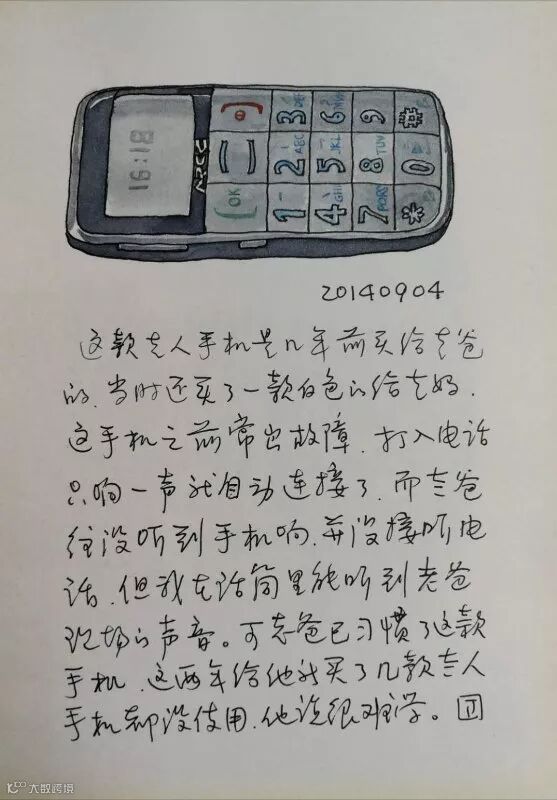 16:18
OK
1 2 ABC 3 DEF
4 GHI 5 JKL 6 MNO
7 PQRS 8 TUV 9
* 0 #
20140904
这款老人手机是几年前买给老爸
的,当时还买了一款白色的给老妈.
这手机之前常出故障,打入电话
只响一声就自动连接了,而老爸
往没听到手机响,并没接听电
话,但我在话筒里能听到老爸
现场的声音。可老爸已习惯了这款
手机,这两年给他我买了几款老人
手机却没使用,他说很难学。回
大数跨境